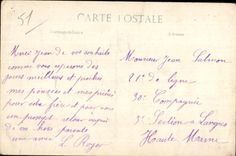 51
CARTE POSTALE
Correspondance
Adresse
Merci Jean de vos souhaits
comme vous espérons des
jours meilleurs et
mes pensées et mes prières
pour votre frère et pour vous
un prompt retour
de vos
une amie L. Royer
Monsieur Jean Salmon
21e de ligne
30e Compagnie
3e Section à Langres
Haute Marne